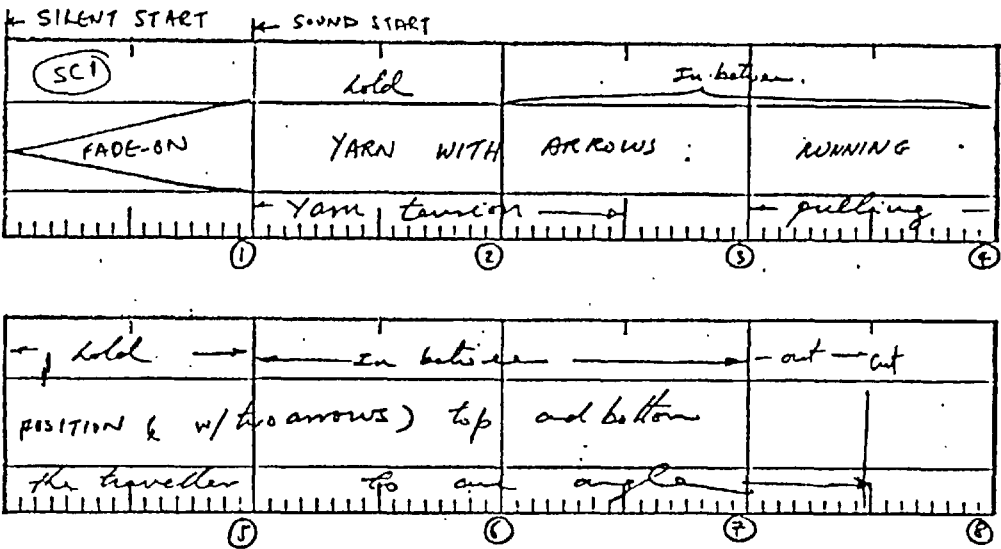 SILENT START SOUND START
SC1 hold In between.
FADE-ON YARN WITH ARROWS : RUNNING
Yarn tension pulling
1 2 3 4
hold In between out cut
POSITION ( w/ two arrows) top and bottom
the traveller to an angle
5 6 7 8